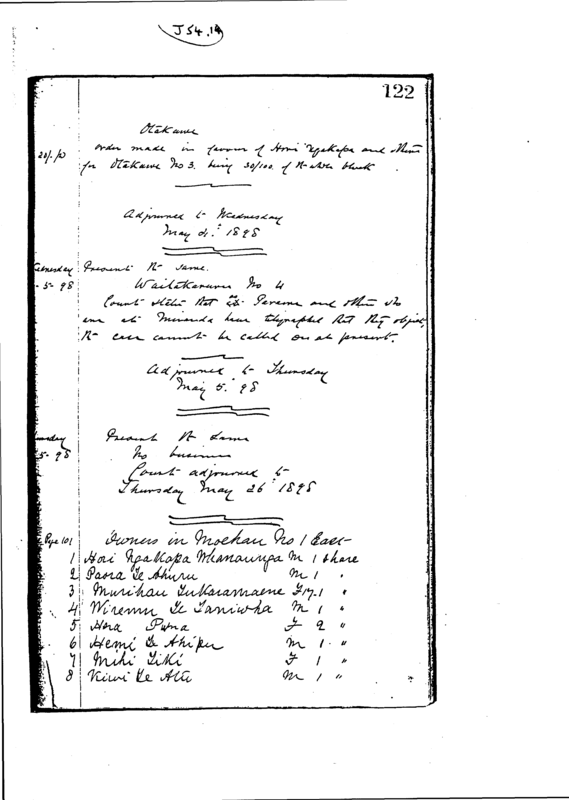 J54.14
122
Otakawe
Order made in favour of Hori Ngakapa and others
for Otakawe No 3. being 30/100 of the whole block
Adjourned to Wednesday
May 4th 1898
Present the same.
Waitakaruru No 4
Court states that Tareranui and others who
are at Miranda have telegraphed that they object,
the case cannot be called on at present.
Adjourned to Thursday
May 5. 98
5. 98
Present the same
No business
Court adjourned to
Thursday May 26th 1898
Page 101 Owners in Moehau No 1 East
1 Hori Ngakapa Whanaunga M 1 share
2 Paora Te Ahuru M 1 "
3 Murihau Tukaramaene F 17. 1 "
4 Wiremu Te Taniwha M 1 "
5 Hera Puna F 2 "
6 Hemi Te Ahipu M 1 "
7 Mihi Tiki F 1 "
8 Kiwi Te Ata M 1 "